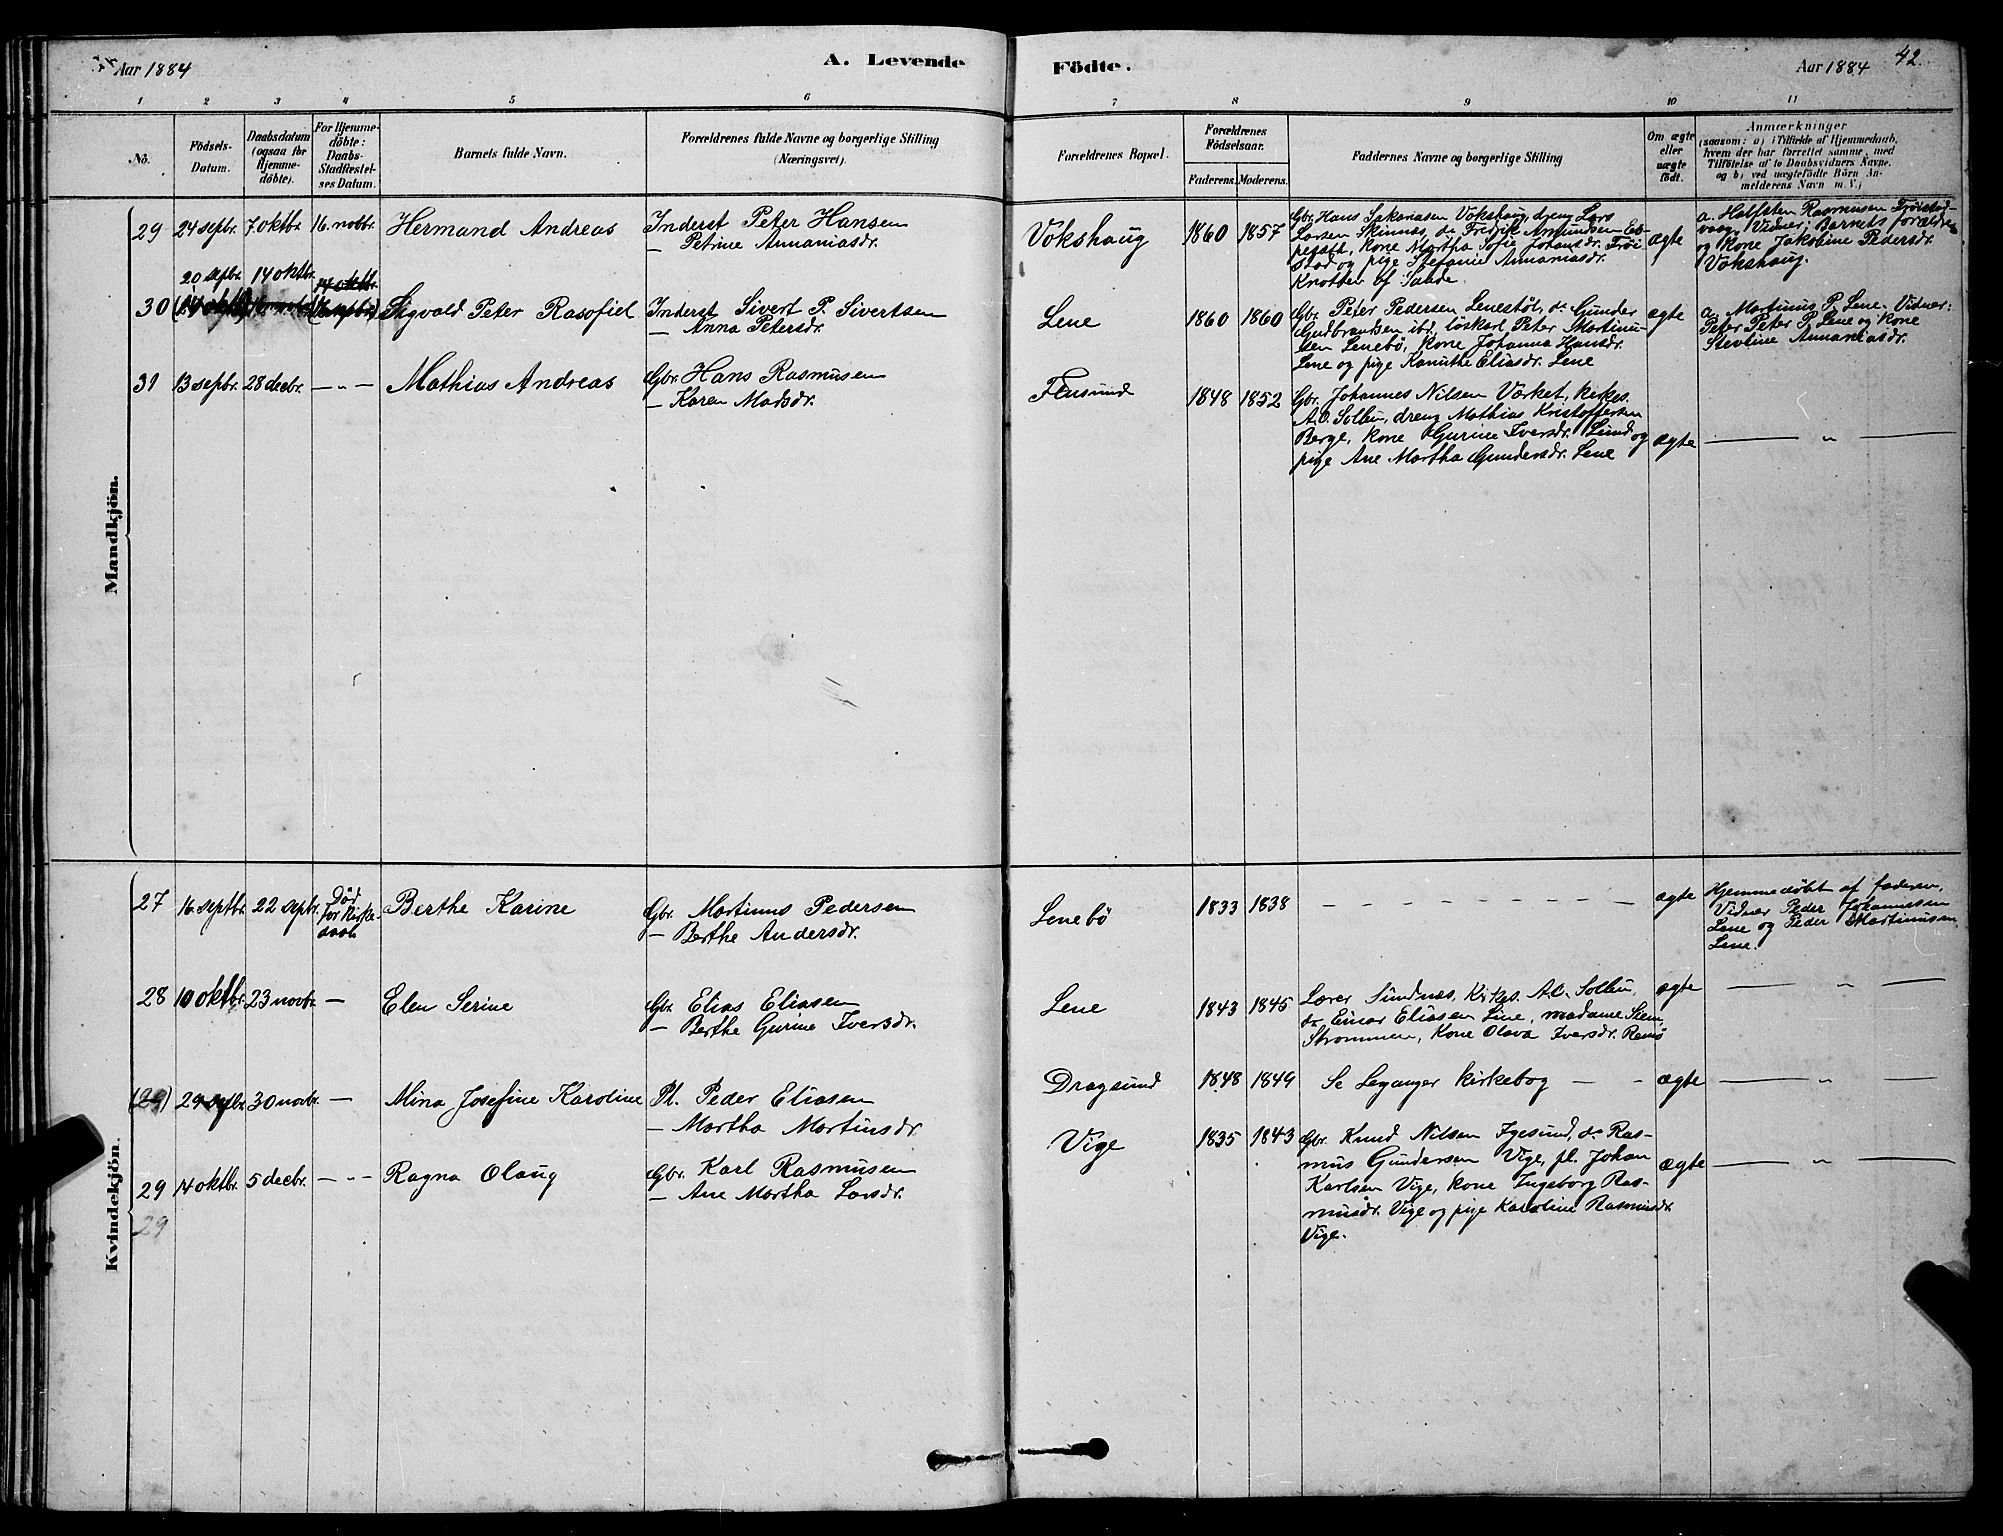 Aar 1884
A. Levende
Födte.
Aar 1884
42.
1 2 3 4 5 6 7 8 9 10 11
No.
Födsels-
Datum.
Daabsdatum
(ogsaa for
Hjemme-
döbte).
For Hjemme-
döbte:
Daabs-
Stadfæstel-
ses Datum.
Barnets fulde Navn.
Forældrenes fulde Navne og borgerlige Stilling
(Næringsvei).
Forældrenes Bopæl.
Forældrenes
Födselsaar.
Faderens. Moderens.
Faddernes Navne og borgerlige Stilling
Om ægte
eller
uægte
födt.
Anmærkninger
(saasom: a) i Tilfælde af Hjemmedaab,
hvem der har forrettet samme, med
Tilföielse af to Daabsvidners Navne.
og b) ved uægtefödte Börn An-
melderens Navn m. V.)
Mandkjön.
29 24 septbr. 7 oktbr. 16. novbr. Hermand Andreas
Inderst Peter Hansen
— Petrine Annaniasdr.
Vokshaug 1860 1857
Gbr. Hans Sakariasen Vokshaug, dreng Lars
Larsen Skinnes, do Fredrik Amundsen
kone Martha Sofie Johansdr. Frøi-
stad og pige Stefanie Annaniasdr.
Knotten af Sande.
ægte
a. Rasmusen Frøistad-
vaag. Vidner, Barnets forældre
og kone Jakobine Pedersdr.
Vokshaug.
20 septbr. 14 oktbr.
30 Sigvald Peter Rasofiel
Inderst Sivert P. Sivertsen
— Anna Petersdr.
Lene 1860 1860
Gbr. Peter Pedersen Lenestøl, do Gunder
Gudbrandsen ibd, løskarl Peter Martinu-
sen Lenebø, kone Johanna Hansdr.
Lene og pige Kanuthe Eliasdr. Lene
ægte
a. Martinus P. Lene. Vidner:
Peter Peter P. Lene og kone
Stevline Annaniasdr.
31 13 septbr. 28 decbr. — „ — Mathias Andreas
Gbr. Hans Rasmusen
— Karen Madsdr.
Flusund 1848 1852
Gbr. Johannes Nilsen Værket, kirkes.
A.O. Solbu, dreng Mathias Kristoffersen
Berge, kone Gurine Iversdr. Lund og
pige Ane Martha Gundersdr. Lene
ægte — „ —
Kvindekjön.
27 16 septbr. 22 septbr. Død
for kirke-
daab
Berthe Karine
Gbr. Martinus Pedersen
— Berthe Andersdr.
Lenebø 1833 1838 — — — — — — — — —
ægte
Hjemmedøbt af faderen.
Vidner Peder Johannessen
Lene og Peder Martinusen
Lene.
28 10 oktbr. 23 novbr. — Elen Serine
Gbr. Elias Eliasen
— Berthe Gurine Iversdr.
Lene 1843 1845
Lærer Sundnæs, Kirkes. A.O. Solbu,
do Einar Eliasen Lene, madame
Strømmen, kone Olava Iversdr. Remø
ægte — „ —
(29) 29 septbr. 30 novbr. — Mina Josefine Karoline
Pl. Peder Eliasen
— Martha Martinsdr.
Dragsund 1848 1849
Se Leganger kirkebog — — ægte — „ —
29 14 oktbr. 5 decbr. — „ — Ragna Olaug
Gbr. Karl Rasmusen
— Ane Martha Larsdr.
Vige 1835 1843
Gbr. Knud Nilsen Igesund, do Ras-
mus Gundersen Vige, pl. Johan
Karlsen Vige, kone Ingeborg Ras-
musdr. Vige og pige Karoline Rasmusdr.
Vige.
ægte — „ —
29